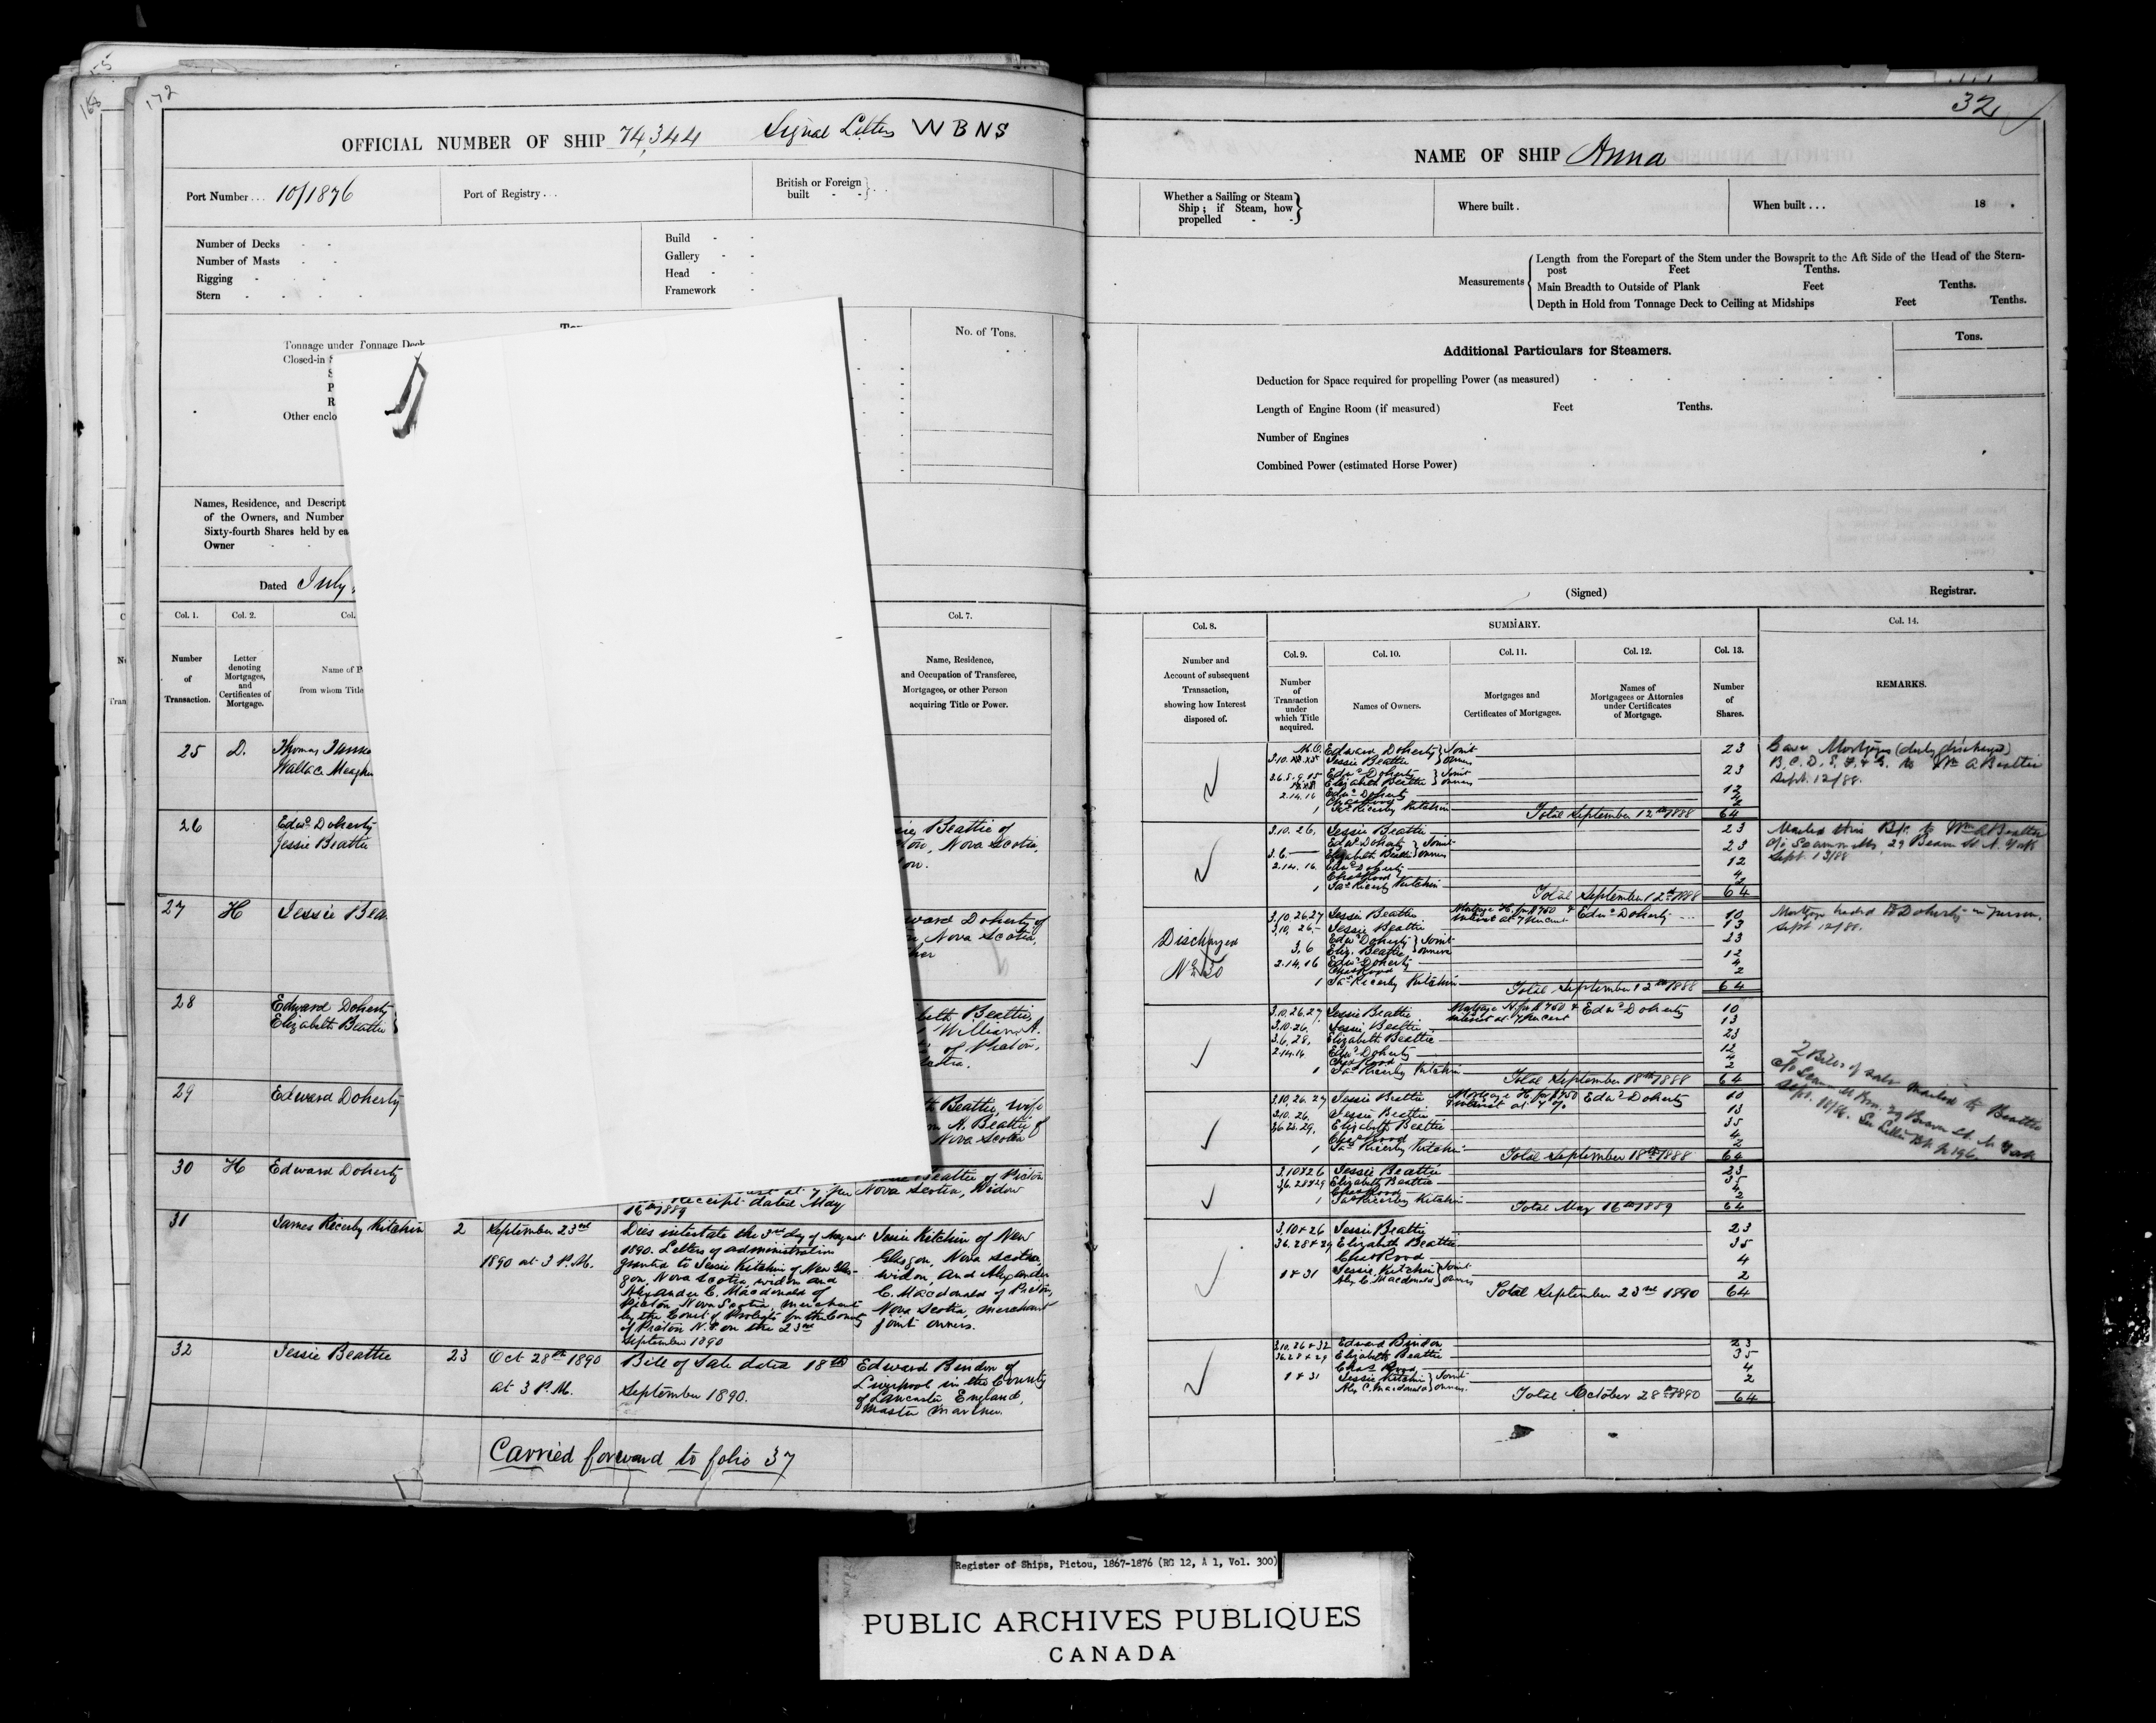 172
OFFICIAL NUMBER OF SHIP 74,344 Signal Letters W B N S
Port Number . . . 10/1876
Port of Registry . . .
British or Foreign built - -
Number of Decks - -
Number of Masts - -
Rigging - - -
Stern - - - -
Build - -
Gallery - -
Head - -
Framework -
No. of Tons.
Tonnage under Tonnage Deck
Closed-in
Other enclo
Names, Residence, and Descript
of the Owners, and Number
Sixty-fourth Shares held by ea
Owner - -
Dated July
Col. 1.
Col. 2.
Col.
Col. 7.
Number of Transaction.
Letter denoting Mortgages, and Certificates of Mortgage.
Name of P
from whom Title
Name, Residence,
and Occupation of Transferee,
Mortgagee, or other Person
acquiring Title or Power.
25 D. Thomas
Wallace
26 Edwd Doherty
Jessie Beattie
Beattie of
Nova Scotia,
27 H Jessie Bea
ward Doherty of
Nova Scotia,
28 Edward Doherty
Elizabeth Beattie
beth Beattie,
William A.
of Pictou,
cotia.
29 Edward Doherty
Beattie, wife
A. Beattie of
Nova Scotia
30 H Edward Doherty
Beattie of Pictou
Receipt dated May Nova Scotia, Widow
16th 1889
31 James Ricerby Kitchin 2 September 23rd
1890 at 3 P.M.
Dies intestate the 3rd day of August
1890. Letters of administration
granted to Jessie Kitchin of New Glas-
gow, Nova Scotia, widow and
Alexander C. Macdonald of
Pictou Nova Scotia, merchant
by the Court of Probate for the County
of Pictou N.S. on the 23rd
September 1890
Jessie Kitchin of New
Glasgow, Nova Scotia,
widow, and Alexander
C. Macdonald of Pictou,
Nova Scotia, merchant
joint owners.
32 Jessie Beattie 23 Oct 28th 1890
at 3 P.M.
Bill of Sale dated 18th
September 1890.
Edward Bindon of
Liverpool in the County
of Lancaster England,
Master Mariner.
Carried forward to folio 37
32
NAME OF SHIP Anna
Whether a Sailing or Steam
Ship; if Steam, how
propelled - -
Where built .
When built . . . 18 .
Measurements
Length from the Forepart of the Stem under the Bowsprit to the Aft Side of the Head of the Stern-
post Feet Tenths.
Main Breadth to Outside of Plank Feet Tenths.
Depth in Hold from Tonnage Deck to Ceiling at Midships Feet Tenths.
Additional Particulars for Steamers.
Tons.
Deduction for Space required for propelling Power (as measured)
Length of Engine Room (if measured) Feet Tenths.
Number of Engines
Combined Power (estimated Horse Power)
(Signed) Registrar.
Col. 8.
SUMMARY.
Col. 14.
Col. 9. Col. 10. Col. 11. Col. 12. Col. 13.
Number and
Account of subsequent
Transaction,
showing how Interest
disposed of.
Number of Transaction under which Title acquired.
Names of Owners.
Mortgages and
Certificates of Mortgages.
Names of
Mortgagees or Attornies
under Certificates
of Mortgage.
Number of Shares.
REMARKS.
Edward Doherty } Joint 23
Jessie Beattie } owners
Edwd Doherty } Joint 23
Elizabeth Beattie } owners
2.14.16 Edwd Doherty 12
Chas Rood
1 Jas Ricerby Kitchin
Total September 12th 1888 64
Gave Mortgages (duly discharged)
B. C. D. E. F. & G. to Wm A Beattie
Sept. 12/88.
3.10.26. Jessie Beattie 23
Edwd Doherty } Joint
3.6. Elizabeth Beattie } owners 23
2.14.16 Edwd Doherty 12
Chas Rood 4
1 Jas Ricerby Kitchin 2
Total September 12th 1888 64
Mailed this B/S. to Wm A Beattie
29 Beaver St N. York
Sept. 13/88
Discharged
No 30
3.10.26.27 Jessie Beattie Mortgage H. for $750 & interest at 7 per cent Edwd Doherty 10
3.10.26. Jessie Beattie 13
3.6 Edwd Doherty } Joint 23
Eliz. Beattie } owners
2.14.16 Edwd Doherty 12
Chas Rood 4
1 Jas Ricerby Kitchin 2
Total September 12th 1888 64
Mortgage handed E Doherty in person.
Sept 12/88.
3.10.26.27 Jessie Beattie Mortgage H for $750 & interest at 7 per cent Edwd Doherty 10
3.10.26. Jessie Beattie 13
3.6.28. Elizabeth Beattie 23
2.14.16 Edwd Doherty 12
Chas Rood 4
1 Jas Ricerby Kitchin 2
Total September 18th 1888 64
2 Bills of sale mailed to Beattie
29 Beaver St. N York
Sept. 18/88. See Letter Bk p 196.
3.10.26.27 Jessie Beattie Mortgage H. for $750 & interest at 7 % Edwd Doherty 10
3.10.26. Jessie Beattie 13
3.6.28.29. Elizabeth Beattie 35
Chas Rood 4
1 Jas Ricerby Kitchin 2
Total September 18th 1888 64
3.10 & 26 Jessie Beattie 23
3.6.28 & 29 Elizabeth Beattie 35
Chas Rood 4
1 Jas Ricerby Kitchin 2
Total May 16th 1889 64
3.10 & 26 Jessie Beattie 23
3.6.28 & 29 Elizabeth Beattie 35
Chas Rood 4
1 & 31 Jessie Kitchin } Joint 2
Alex C. Macdonald } owners
Total September 23rd 1890 64
3.10.26 & 32 Edward Bindon 23
3.6.28 & 29 Elizabeth Beattie 35
Chas Rood 4
1 & 31 Jessie Kitchin } Joint 2
Alex C. Macdonald } owners.
Total October 28th 1890 64
Register of Ships, Pictou, 1867-1876 (RG 12, A 1, Vol. 300)
PUBLIC ARCHIVES PUBLIQUES
CANADA